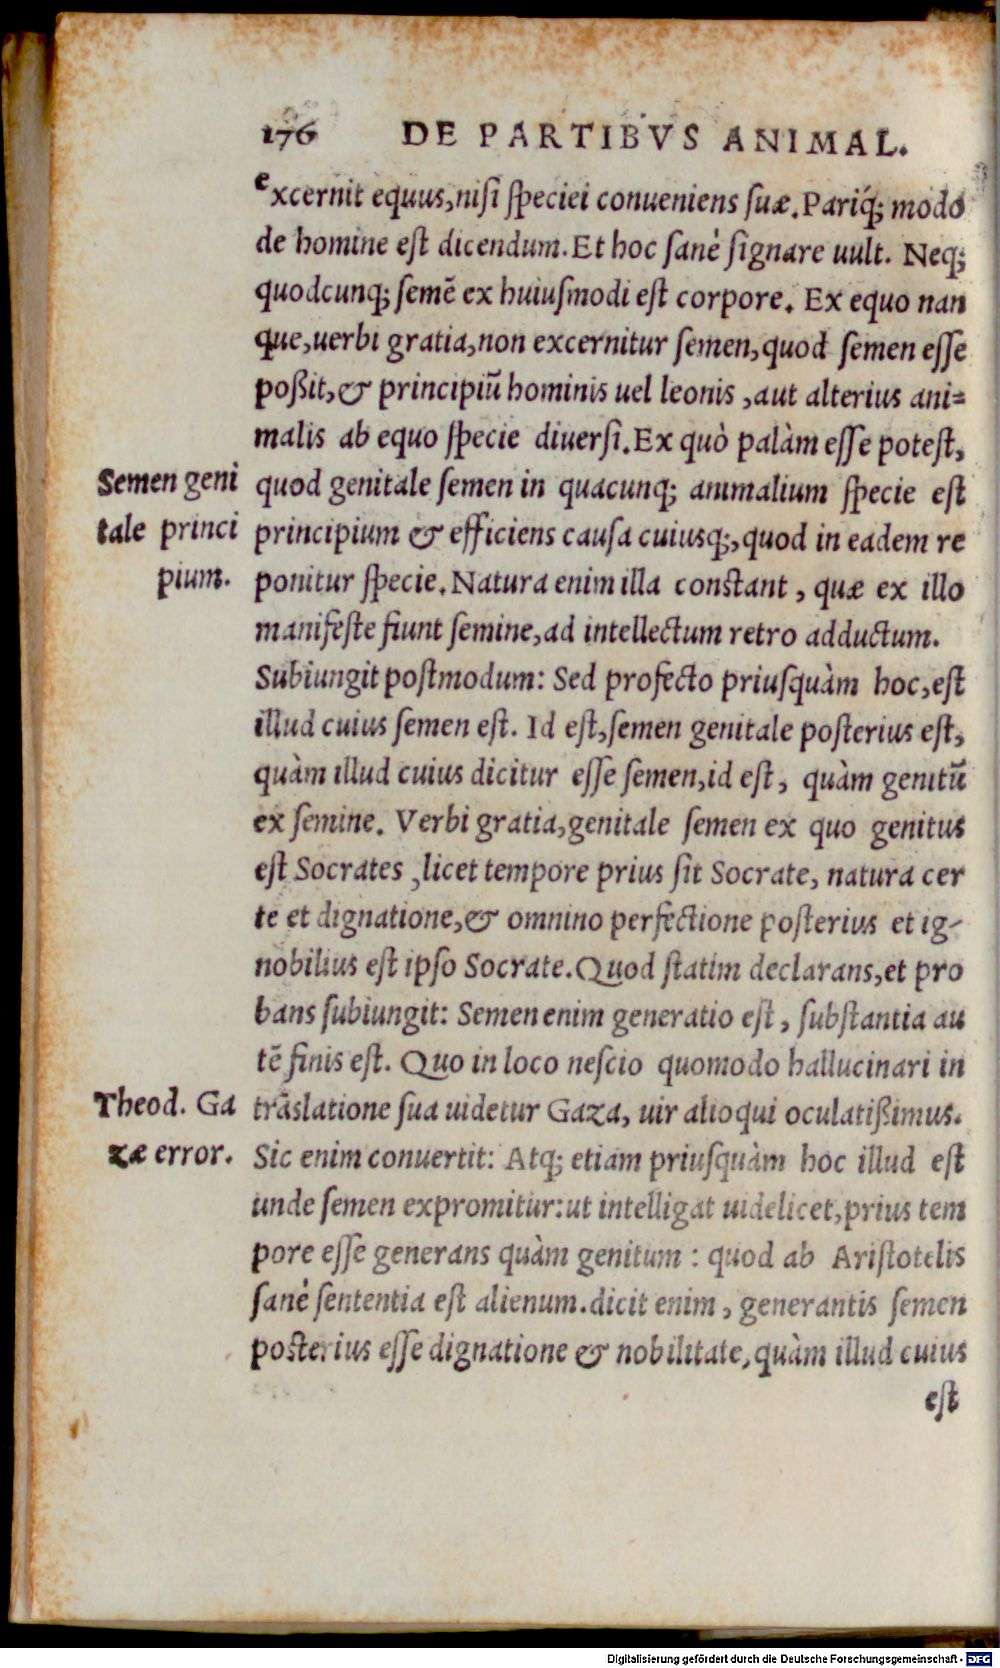 176 DE PARTIBVS ANIMAL.
excernit equus, nisi ſpeciei conueniens ſuæ. Pariq́; modo
de homine eſt dicendum. Et hoc ſanè ſignare uult. Neq;
quodcunq; ſemē ex huiuſmodi eſt corpore. Ex equo nan
que, uerbi gratia, non excernitur ſemen, quod ſemen eſſe
poßit, & principiū hominis uel leonis, aut alterius ani=
malis ab equo ſpecie diuerſi. Ex quò palàm eſſe poteſt,
Semen geni
quod genitale ſemen in quacunq; animalium ſpecie eſt
tale princi
principium & efficiens cauſa cuiusq;, quod in eadem re
pium.
ponitur ſpecie. Natura enim illa conſtant, quæ ex illo
manifeſte fiunt ſemine, ad intellectum retro adductum.
Subiungit poſtmodum: Sed profecto priuſquàm hoc, eſt
illud cuius ſemen eſt. Id eſt, ſemen genitale poſterius eſt,
quàm illud cuius dicitur eſſe ſemen, id eſt, quàm genitū
ex ſemine. Verbi gratia, genitale ſemen ex quo genitus
eſt Socrates, licet tempore prius ſit Socrate, natura cer
te et dignatione, & omnino perfectione poſterius et ig-
nobilius eſt ipſo Socrate. Quod ſtatim declarans, et pro
bans ſubiungit: Semen enim generatio eſt, ſubſtantia au
tē finis eſt. Quo in loco neſcio quomodo hallucinari in
Theod. Ga
trāslatione ſua uidetur Gaza, uir alioqui oculatißimus.
zæ error.
Sic enim conuertit: Atq; etiam priuſquàm hoc illud eſt
unde ſemen expromitur: ut intelligat uidelicet, prius tem
pore eſſe generans quàm genitum: quod ab Ariſtotelis
ſanè ſententia eſt alienum. dicit enim, generantis ſemen
poſterius eſſe dignatione & nobilitate, quàm illud cuius
eſt
Digitalisierung gefördert durch die Deutsche Forschungsgemeinschaft - DFG